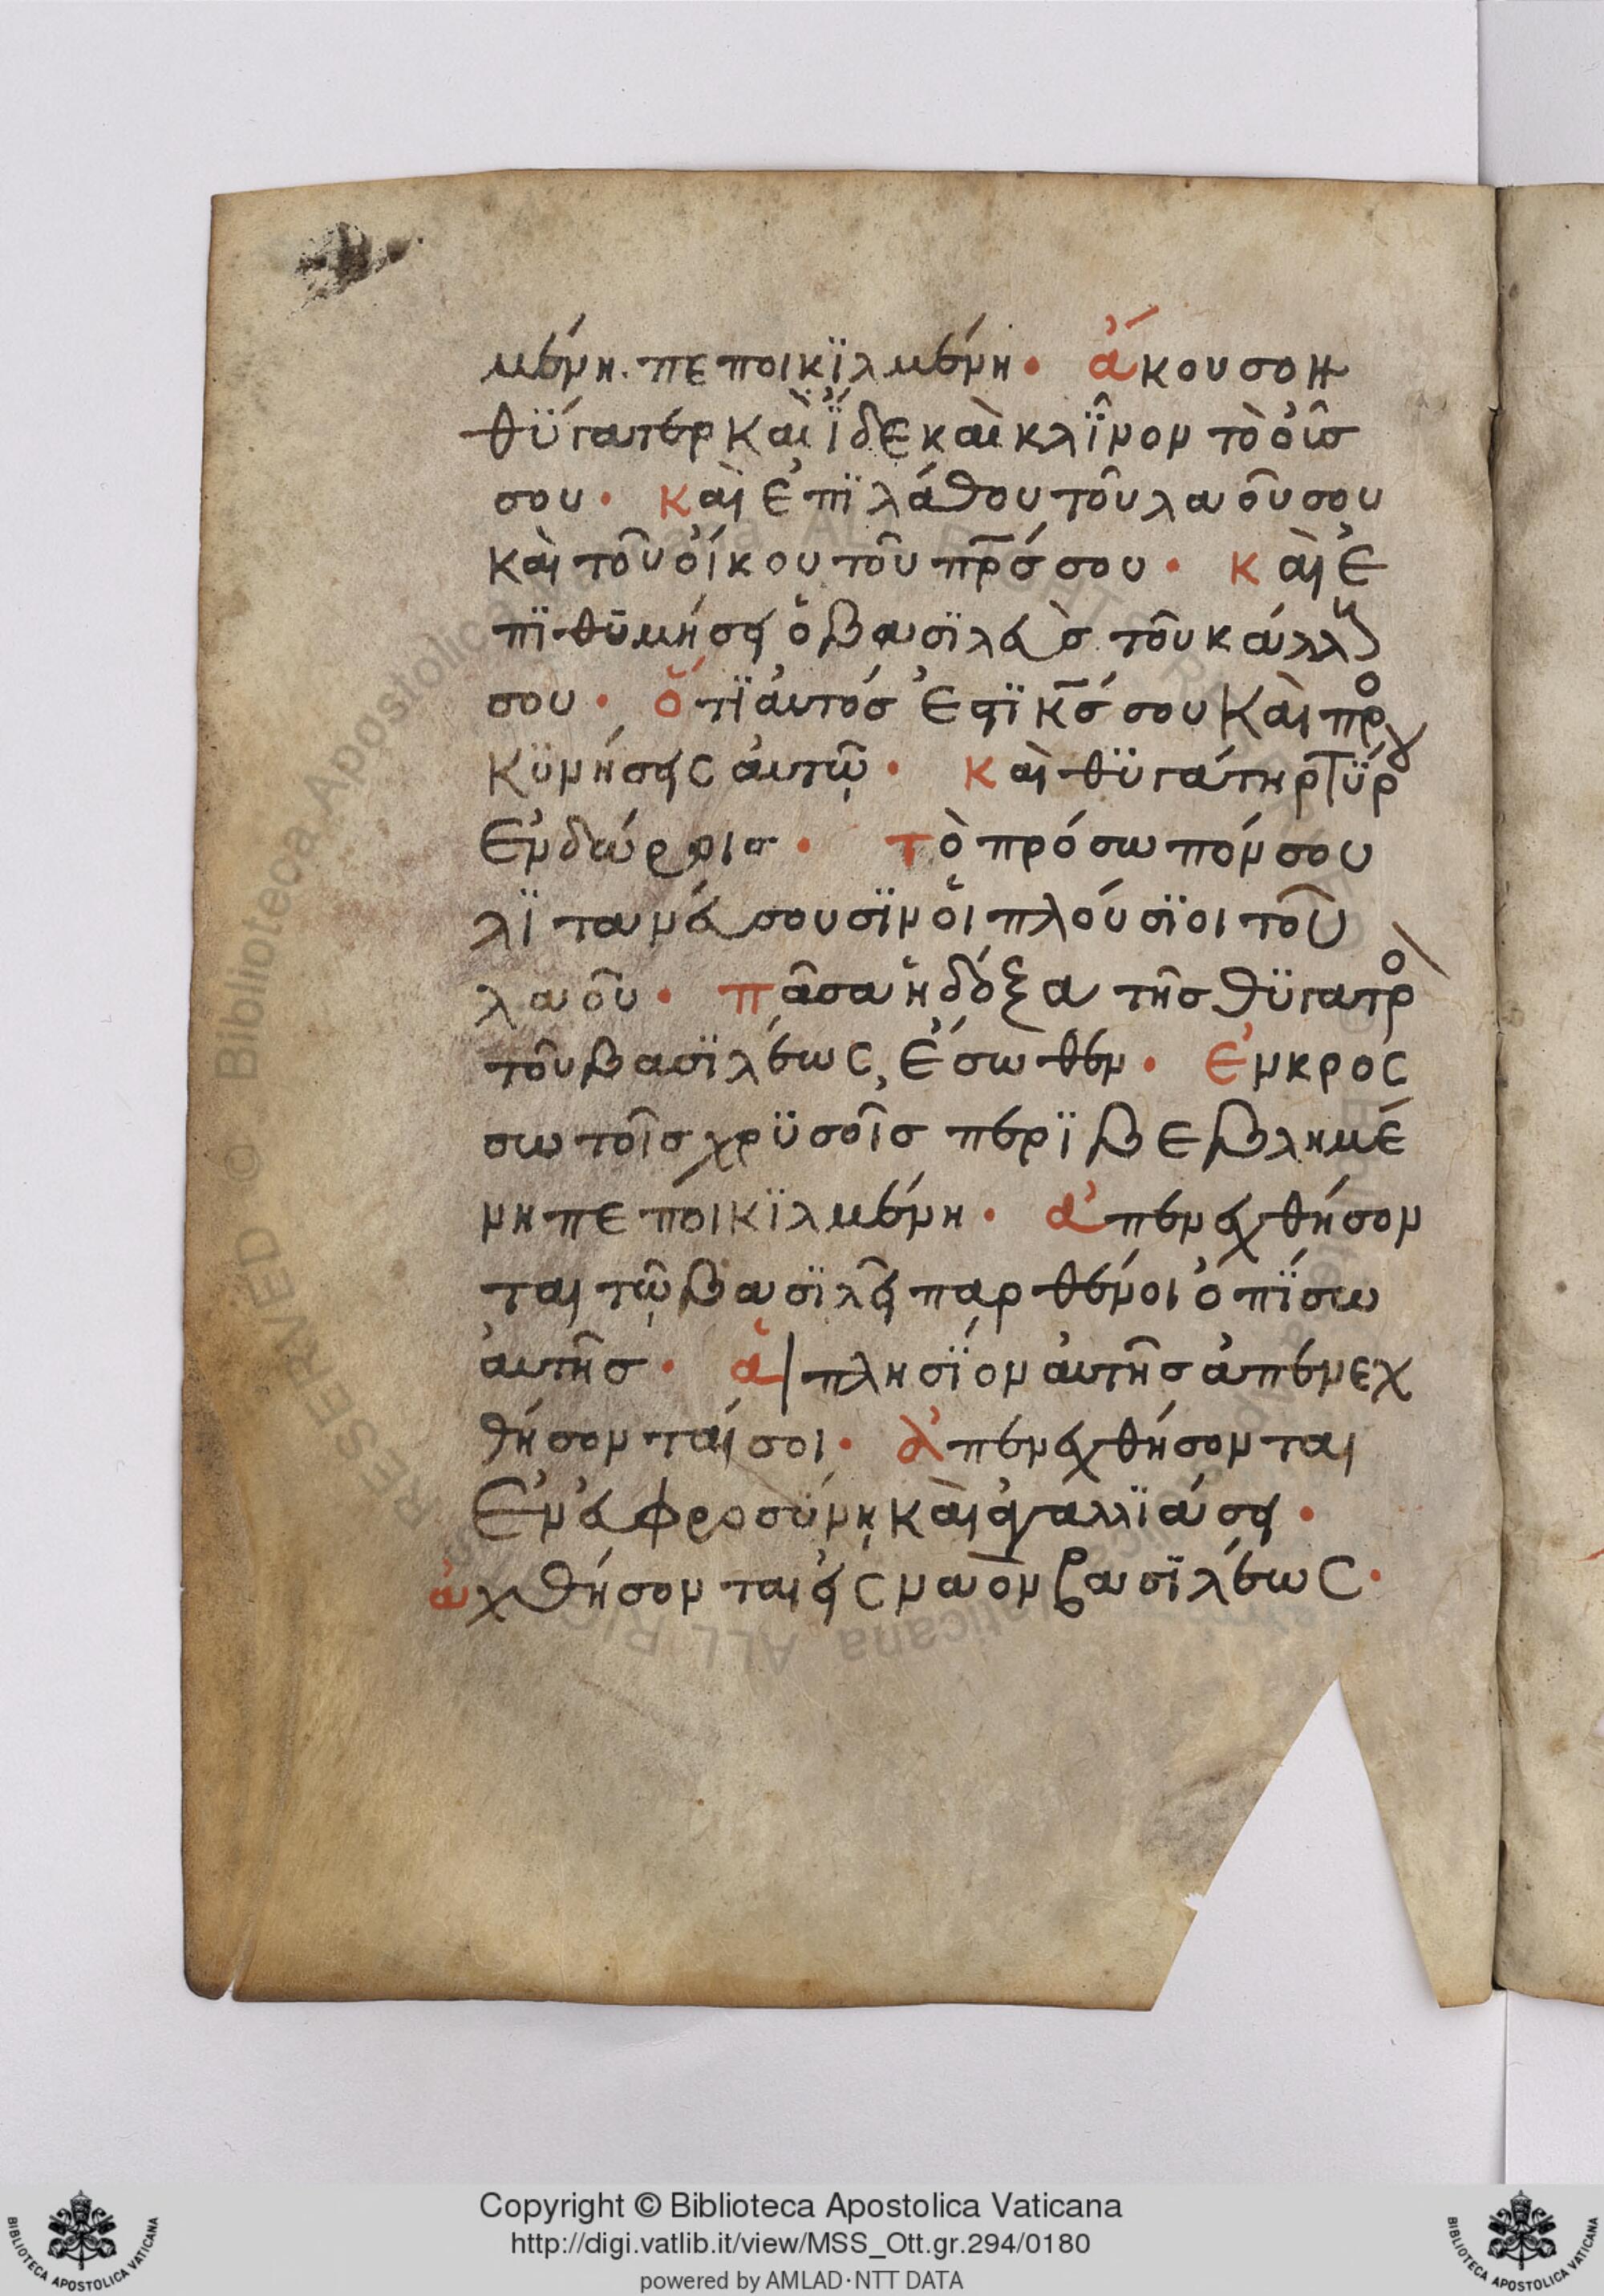 μένη. πεποικϊλμένη· ἄκουσον
θϋγατερ καὶ ἴδε καὶ κλῖνον τὸ οὖσ
σου· καὶ ἐπϊλάθου τοῦ λαοῦ σου
καὶ τοῦ οἴκου τοῦ πρ̅σ σου· καὶ ἐ
πϊθϋμήσει ὁ βασϊλεὺσ τοῦ κάλλους
σου· ὅτϊ ἀυτόσ ἐστϊ κ̅σ σου καὶ προσ
κϋνήσεις ἀυτῷ· καὶ θϋγάτηρ τϋρ
ἐν δώροισ· τὸ πρόσωπόν σου
λϊτανέυσουσϊν ὁι πλούσϊοι τοῦ
λαοῦ· πᾶσα ἡ δόξα τῆσ θϋγατρο
τοῦ βασϊλέως, ἔσωθεν· ἐν κρος
σωτοῖσ χρϋσοῖσ περϊβεβλημέ
νη πεποικϊλμένη· ἀπενεχθήσον
ται τῷ βασϊλεῖ παρθένοι ὀπϊσω
ἀυτῆσ· ἁι πλησϊον ἀυτῆσ ἀπενεχ
θήσονταί σοι· ἀπενεχθήσονται
ἐν ἐυφροσϋνη καὶ ἀγαλλϊάσει·
ἀχθήσονται εἰς ναὸν βασϊλέως·
Copyright © Biblioteca Apostolica Vaticana
http://digi.vatlib.it/view/MSS_Ott.gr.294/0180
powered by AMLAD·NTT DATA
BIBLIOTECA APOSTOLICA VATICANA
BIBLIOTECA APOSTOLICA VATICANA